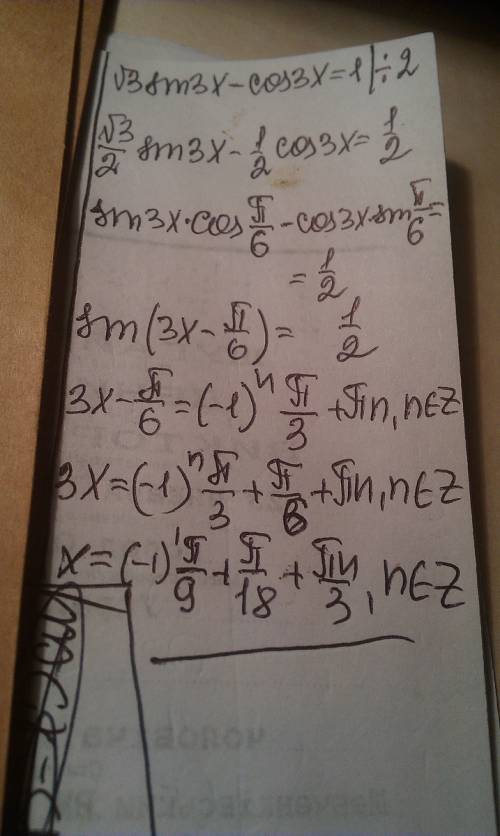 √3 sin3x - cos3x = 1 | ÷ 2
√3/2 sin3x - 1/2 cos3x = 1/2
sin3x · cos π/6 - cos3x · sin π/6 =
= 1/2
sin(3x - π/6) = 1/2
3x - π/6 = (-1)^n π/3 + πn, n∈Z
3x = (-1)^n π/3 + π/6 + πn, n∈Z
x = (-1)^n π/9 + π/18 + πn/3, n∈Z